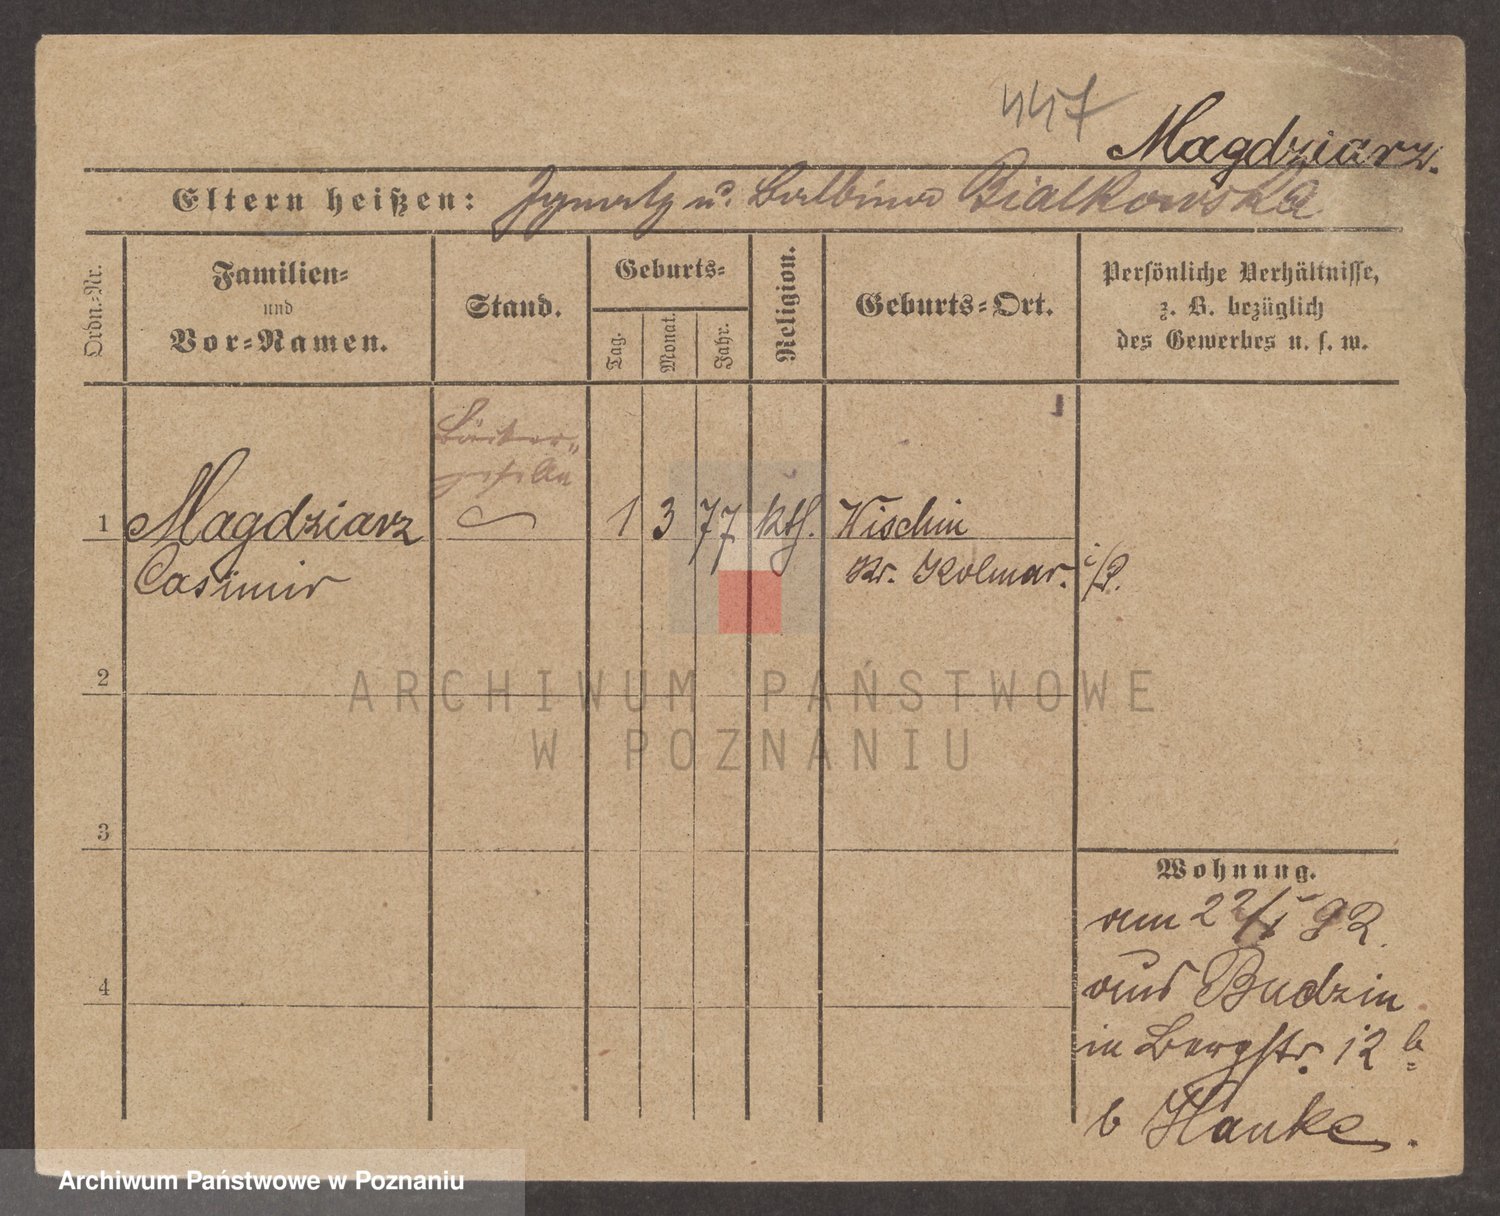 447
Magdziarz.
Eltern heißen: Ignatz u. Balbina Bialkowska
Ordn.-Nr.
Familien-
und
Vor-Namen.
Stand.
Geburts-
Tag.
Monat.
Jahr.
Religion.
Geburts-Ort.
Persönliche Verhältnisse,
z. B. bezüglich
des Gewerbes u. s. w.
Bäcker-
geselle
1 Magdziarz 1 3 77 kth. Wischin
Casimir Kr. Kolmar. i/P.
2
3
4
Wohnung.
am 22/1 92.
aus Budzin
in Bergstr. 12 b
b Hanke.
ARCHIWUM PAŃSTWOWE
W POZNANIU
Archiwum Państwowe w Poznaniu